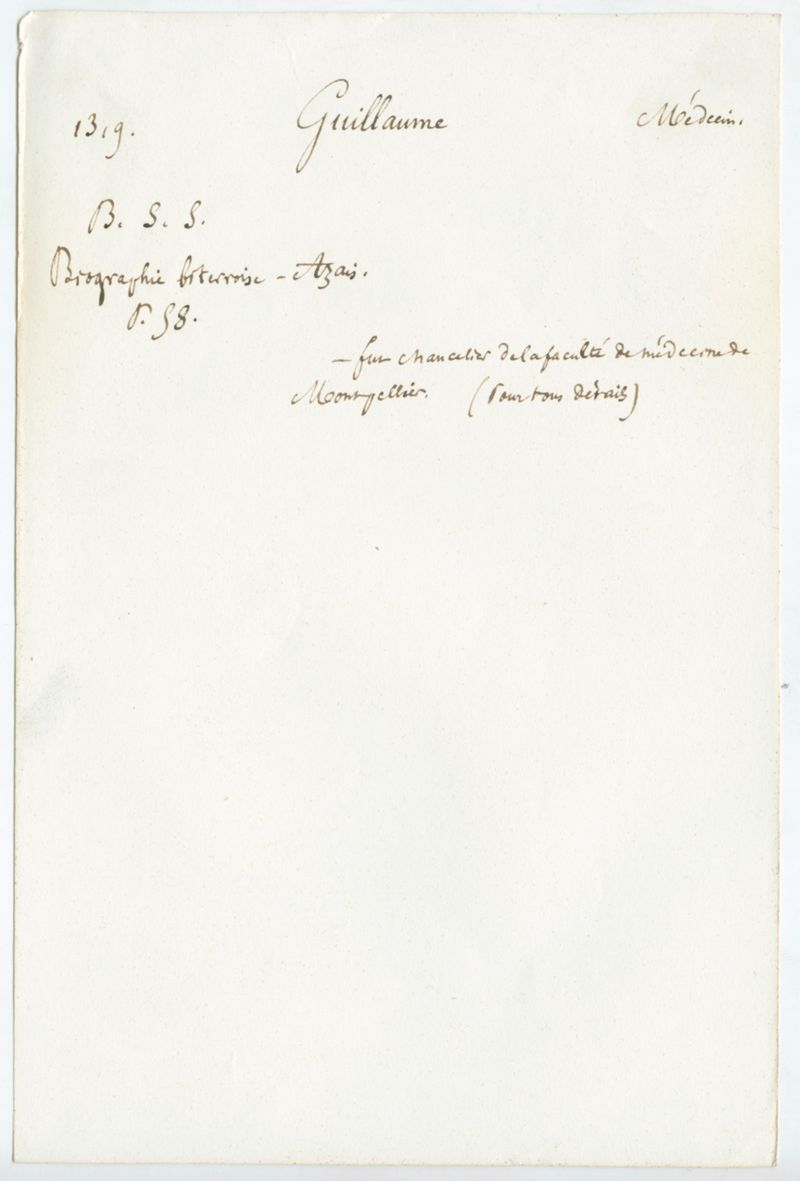 1319. Guillaume Médecin.
B. S. S.
Biographie biterroise - Azaïs.
P. 58.
- fut chancelier de la faculté de médecine de
Montpellier. (Pour tous détails)